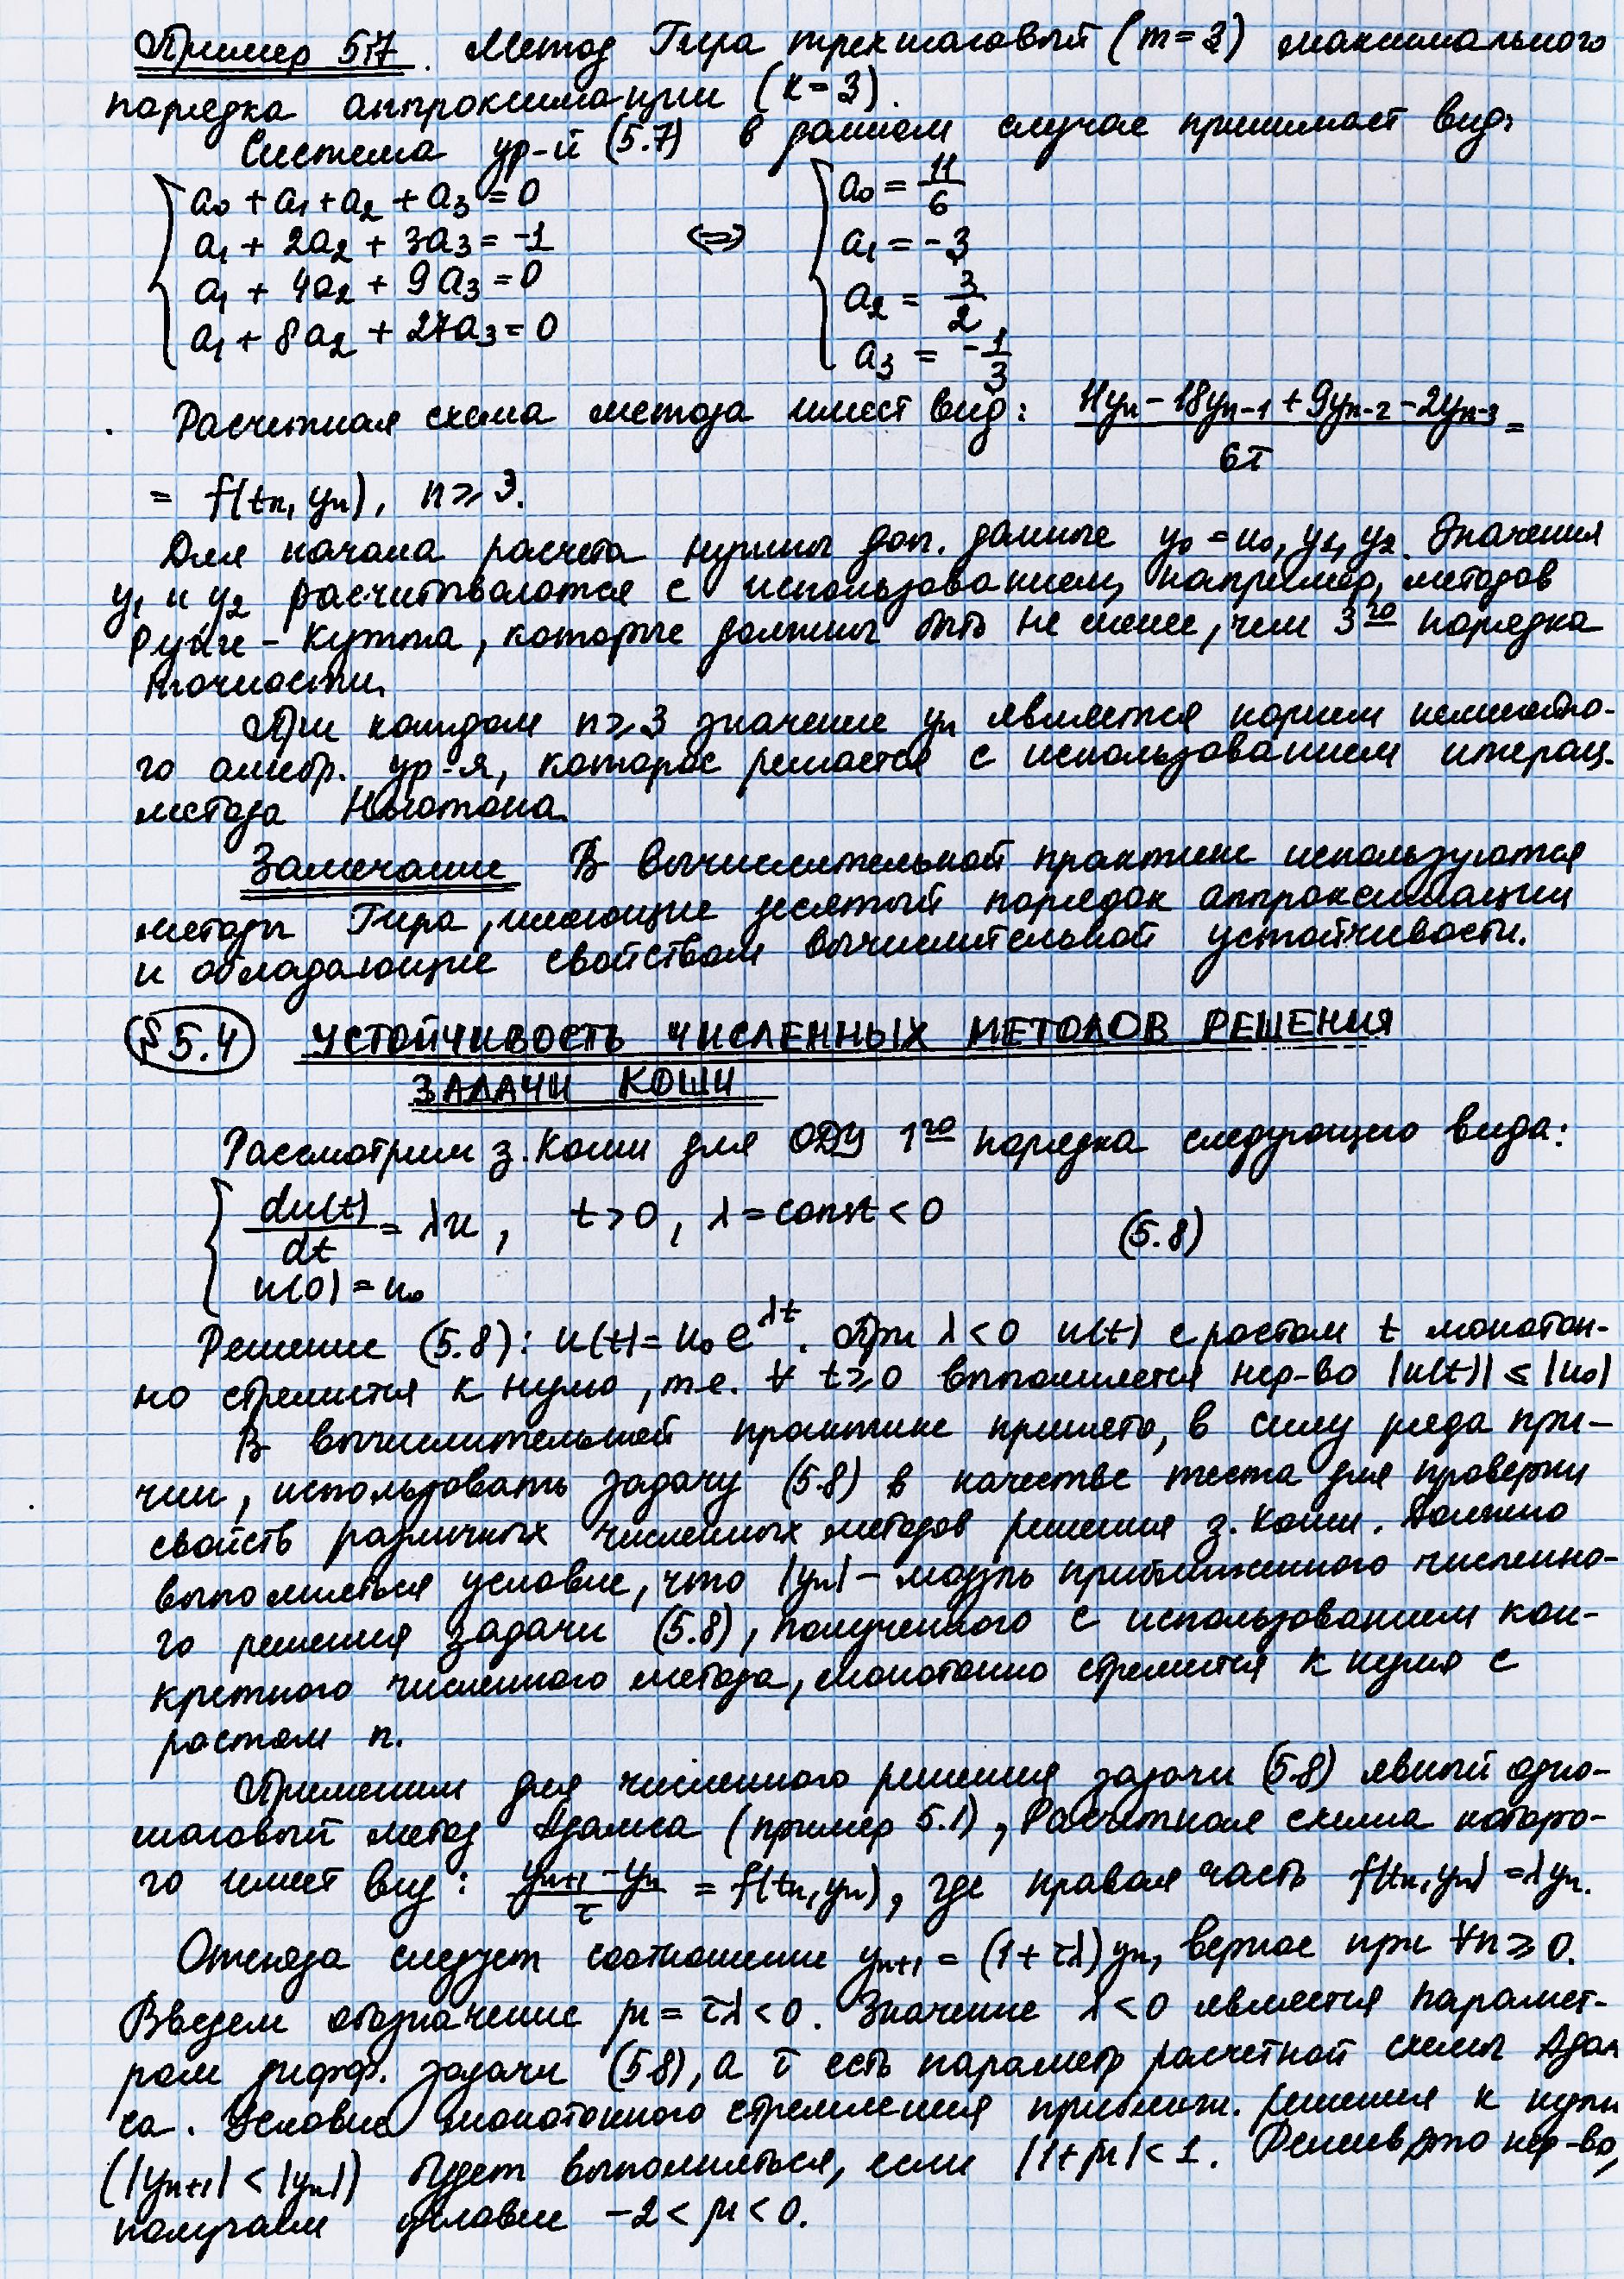 Пример 5.7. Метод Гира трехшаговый (m=3) максимального
порядка аппроксимации (k=3).
Система ур-й (5.7) в данном случае принимает вид:
a₀ + a₁ + a₂ + a₃ = 0
a₁ + 2a₂ + 3a₃ = -1
a₁ + 4a₂ + 9a₃ = 0
a₁ + 8a₂ + 27a₃ = 0
⇔
a₀ = 11/6
a₁ = -3
a₂ = 3/2
a₃ = -1/3
Расчетная схема метода имеет вид: (11yₙ - 18yₙ₋₁ + 9yₙ₋₂ - 2yₙ₋₃)/6τ =
= f(tₙ, yₙ), n ≥ 3.
Для начала расчета нужны доп. данные y₀ = u₀, y₁, y₂. Значения
y₁ и y₂ рассчитываются с использованием, например, методов
Рунге - Кутта, которые должны быть не менее, чем 3го порядка
точности.
При каждом n ≥ 3 значение yₙ является корнем нелинейно-
го алгебр. ур-я, которое решается с использованием итерац.
метода Ньютона.
Замечание В вычислительной практике используются
методы Гира, имеющие десятый порядок аппроксимации
и обладающие свойством вычислительной устойчивости.
§ 5.4 УСТОЙЧИВОСТЬ ЧИСЛЕННЫХ МЕТОДОВ РЕШЕНИЯ
ЗАДАЧИ КОШИ
Рассмотрим з. Коши для ОДУ 1го порядка следующего вида:
du(t)/dt = λu, t > 0, λ = const < 0
(5.8)
u(0) = u₀
Решение (5.8): u(t) = u₀ e^λt. При λ < 0 u(t) с ростом t монотон-
но стремится к нулю, т.е. ∀ t ≥ 0 выполняется нер-во |u(t)| ≤ |u₀|
В вычислительной практике принято, в силу ряда при-
чин, использовать задачу (5.8) в качестве теста для проверки
свойств различных численных методов решения з. Коши. Должно
выполняться условие, что |yₙ| - модуль приближенного численно-
го решения задачи (5.8), полученного с использованием кон-
кретного численного метода, монотонно стремится к нулю с
ростом n.
Применим для численного решения задачи (5.8) явный одно-
шаговый метод Адамса (пример 5.1), расчетная схема которо-
го имеет вид: (yₙ₊₁ - yₙ)/τ = f(tₙ, yₙ), где правая часть f(tₙ, yₙ) = λyₙ.
Отсюда следует соотношение yₙ₊₁ = (1 + τλ)yₙ, верное при ∀n ≥ 0.
Введем обозначение μ = τλ < 0. Значение λ < 0 является парамет-
ром дифф. задачи (5.8), а τ есть параметр расчетной схемы Адам
са. Условие монотонного стремления приближ. решения к нулю
(|yₙ₊₁| < |yₙ|) будет выполняться, если |1 + μ| < 1. Решив это нер-во,
получаем условие -2 < μ < 0.